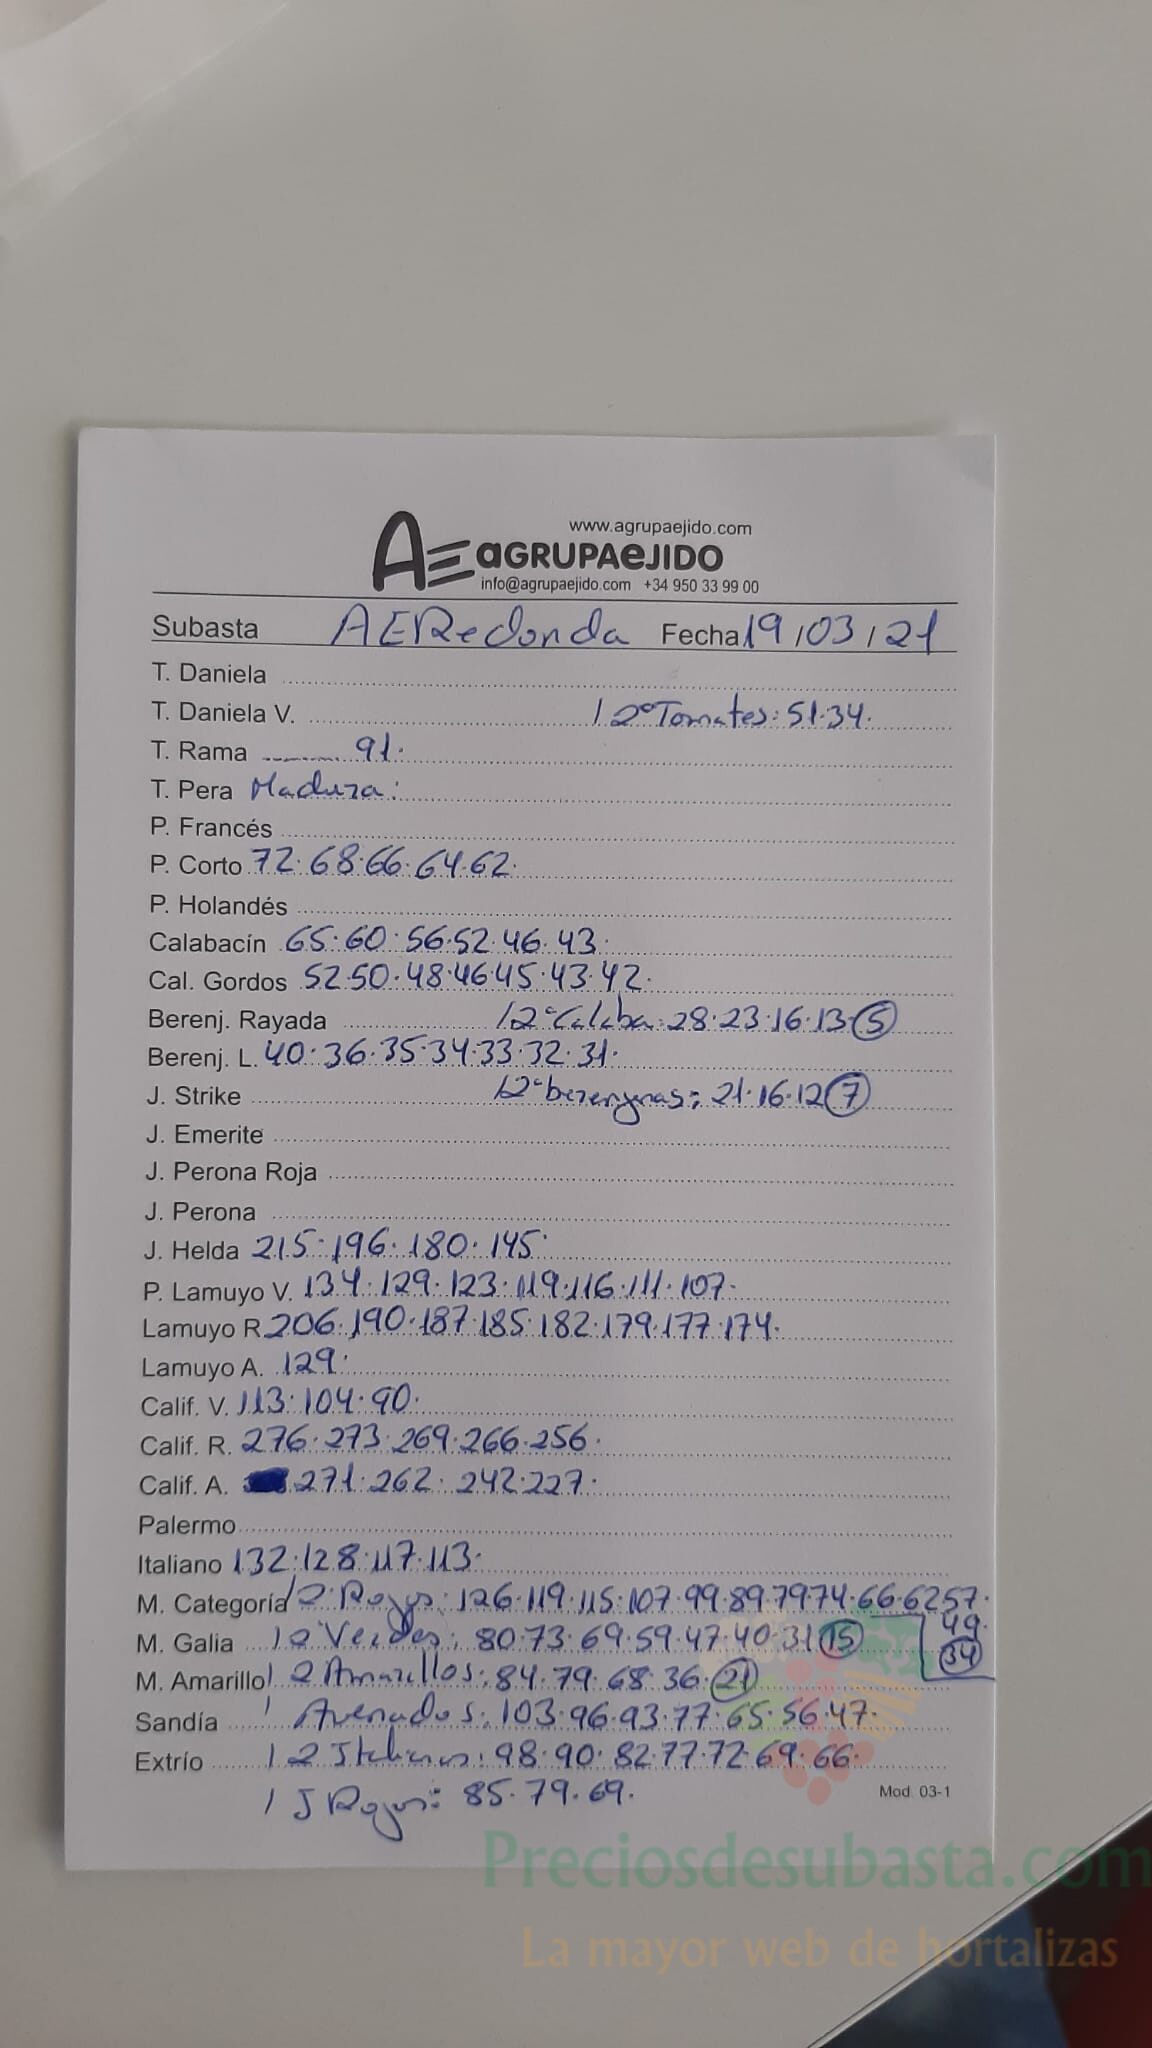 www.agrupaejido.com
AE aGRUPAeJIDO
info@agrupaejido.com +34 950 33 99 00
Subasta AERedonda Fecha 19/03/21
T. Daniela
T. Daniela V. / 2ª Tomates: 51.34.
T. Rama 91.
T. Pera Madura:
P. Francés
P. Corto 72.68.66.64.62.
P. Holandés
Calabacín 65.60.56.52.46.43.
Cal. Gordos 52.50.48.46.45.43.42.
Berenj. Rayada / 2ª Calaba: 28.23.16.13.5
Berenj. L. 40.36.35.34.33.32.31.
J. Strike / 2ª berenjenas: 21.16.12.7
J. Emerite
J. Perona Roja
J. Perona
J. Helda 215.196.180.145.
P. Lamuyo V. 134.129.123.119.116.111.107.
Lamuyo R 206.190.187.185.182.179.177.174.
Lamuyo A. 129.
Calif. V. 113.104.90.
Calif. R. 276.273.269.266.256.
Calif. A. 271.262.242.227.
Palermo
Italiano 132.128.117.113.
M. Categoría / 2 Rojos: 126.119.115.107.99.89.79.74.66.62.57.
49.
34
M. Galia / 2 Verdes: 80.73.69.59.47.40.31.15
M. Amarillo / 2 Amarillos: 84.79.68.36.21
Sandía / Avenados: 103.96.93.77.65.56.47.
Extrío / 2 Italianos: 98.90.82.77.72.69.66.
/ J Rojos: 85.79.69.
Mod. 03-1
Preciosdesubasta.com
La mayor web de hortalizas